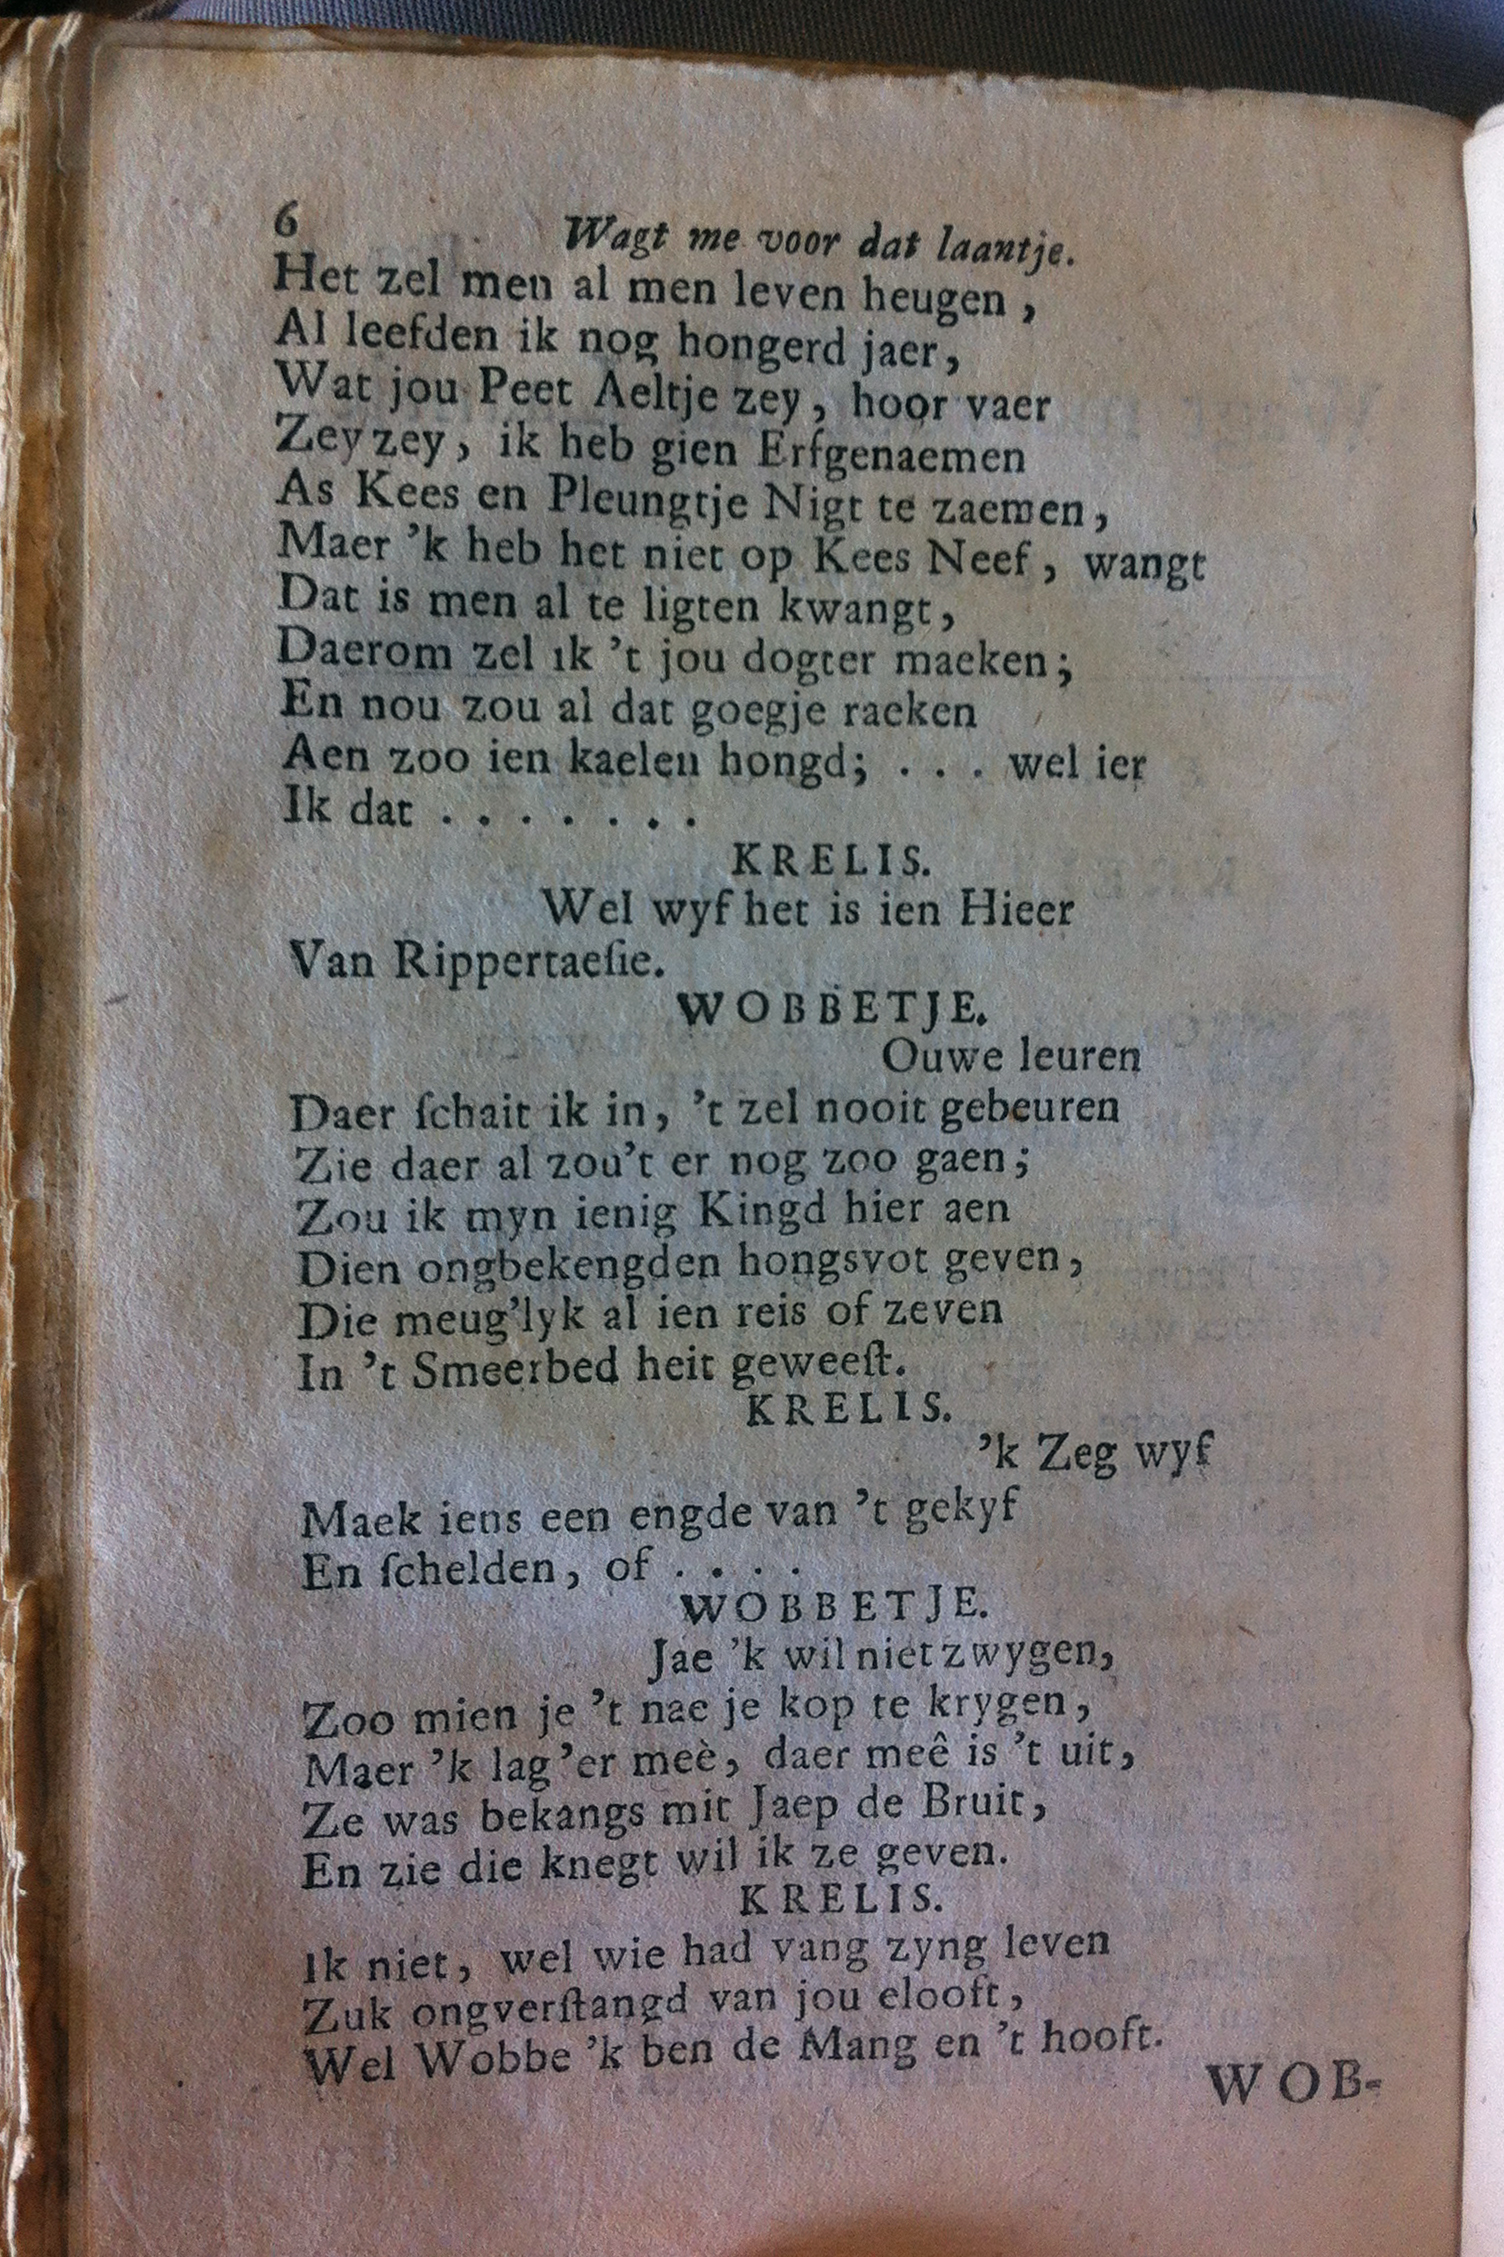 6 Wagt me voor dat laantje.
Het zel men al men leven heugen,
Al leefden ik nog hongerd jaer,
Wat jou Peet Aeltje zey, hoor vaer
Zey zey, ik heb gien Erfgenaemen
As Kees en Pleungtje Nigt te zaemen,
Maer 'k heb het niet op Kees Neef, wangt
Dat is men al te ligten kwangt,
Daerom zel ik 't jou dogter maeken;
En nou zou al dat goegje raeken
Aen zoo ien kaelen hongd; . . . wel ier
Ik dat . . . . . . .
KRELIS.
Wel wyf het is ien Hieer
Van Rippertaeſie.
WOBBETJE.
Ouwe leuren
Daer ſchait ik in, 't zel nooit gebeuren
Zie daer al zou't er nog zoo gaen;
Zou ik myn ienig Kingd hier aen
Dien ongbekengden hongsvot geven,
Die meug'lyk al ien reis of zeven
In 't Smeerbed heit geweeſt.
KRELIS.
'k Zeg wyf
Maek iens een engde van 't gekyf
En ſchelden, of . . . .
WOBBETJE.
Jae 'k wil niet zwygen,
Zoo mien je 't nae je kop te krygen,
Maer 'k lag 'er meè, daer meê is 't uit,
Ze was bekangs mit Jaep de Bruit,
En zie die knegt wil ik ze geven.
KRELIS.
Ik niet, wel wie had vang zyng leven
Zuk ongverſtangd van jou elooft,
Wel Wobbe 'k ben de Mang en 't hooft.
WOB-